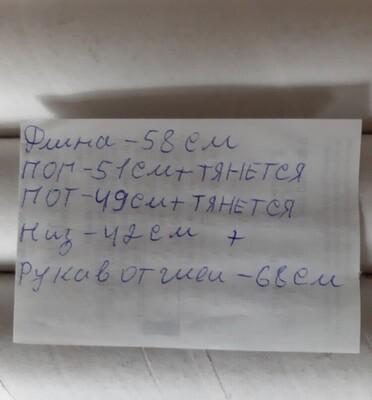 Длина - 58 см
ПОГ - 51 см + ТЯНЕТСЯ
ПОТ - 49 см + ТЯНЕТСЯ
Низ - 42 см +
Рукав от шеи - 68 см